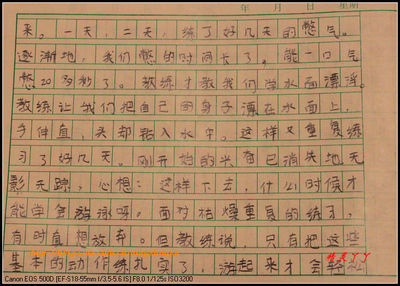 年 月 日 星期
来。一天，二天，练了好几天的憋气。
逐渐地，我们憋的时间长了，能一口气
憋20多秒了。教练才教我们学水面漂浮。
教练让我们把自己的身子漂在水面上，
手伸直，头却钻入水中。这样又重复练
习了好几天。刚开始的兴奋已消失地无
影无踪，心想：这样下去，什么时候才
能学会游泳呀。面对枯燥重复的练习，
有时真想放弃。但教练说，只有把这些
基本的动作练扎实了，游起来才会轻松
Canon EOS 500D [EF-S18-55mm f/3.5-5.6IS] F8.0 1/125s ISO3200